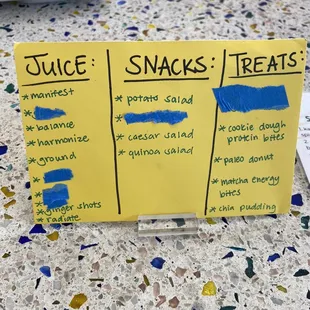 JUICE:
* manifest
*
* balance
* harmonize
* ground
*
*
* ginger shots
* radiate
SNACKS:
* potato salad
*
* caesar salad
* quinoa salad
TREATS:
* cookie dough
protein bites
* paleo donut
* matcha energy
bites
* chia pudding